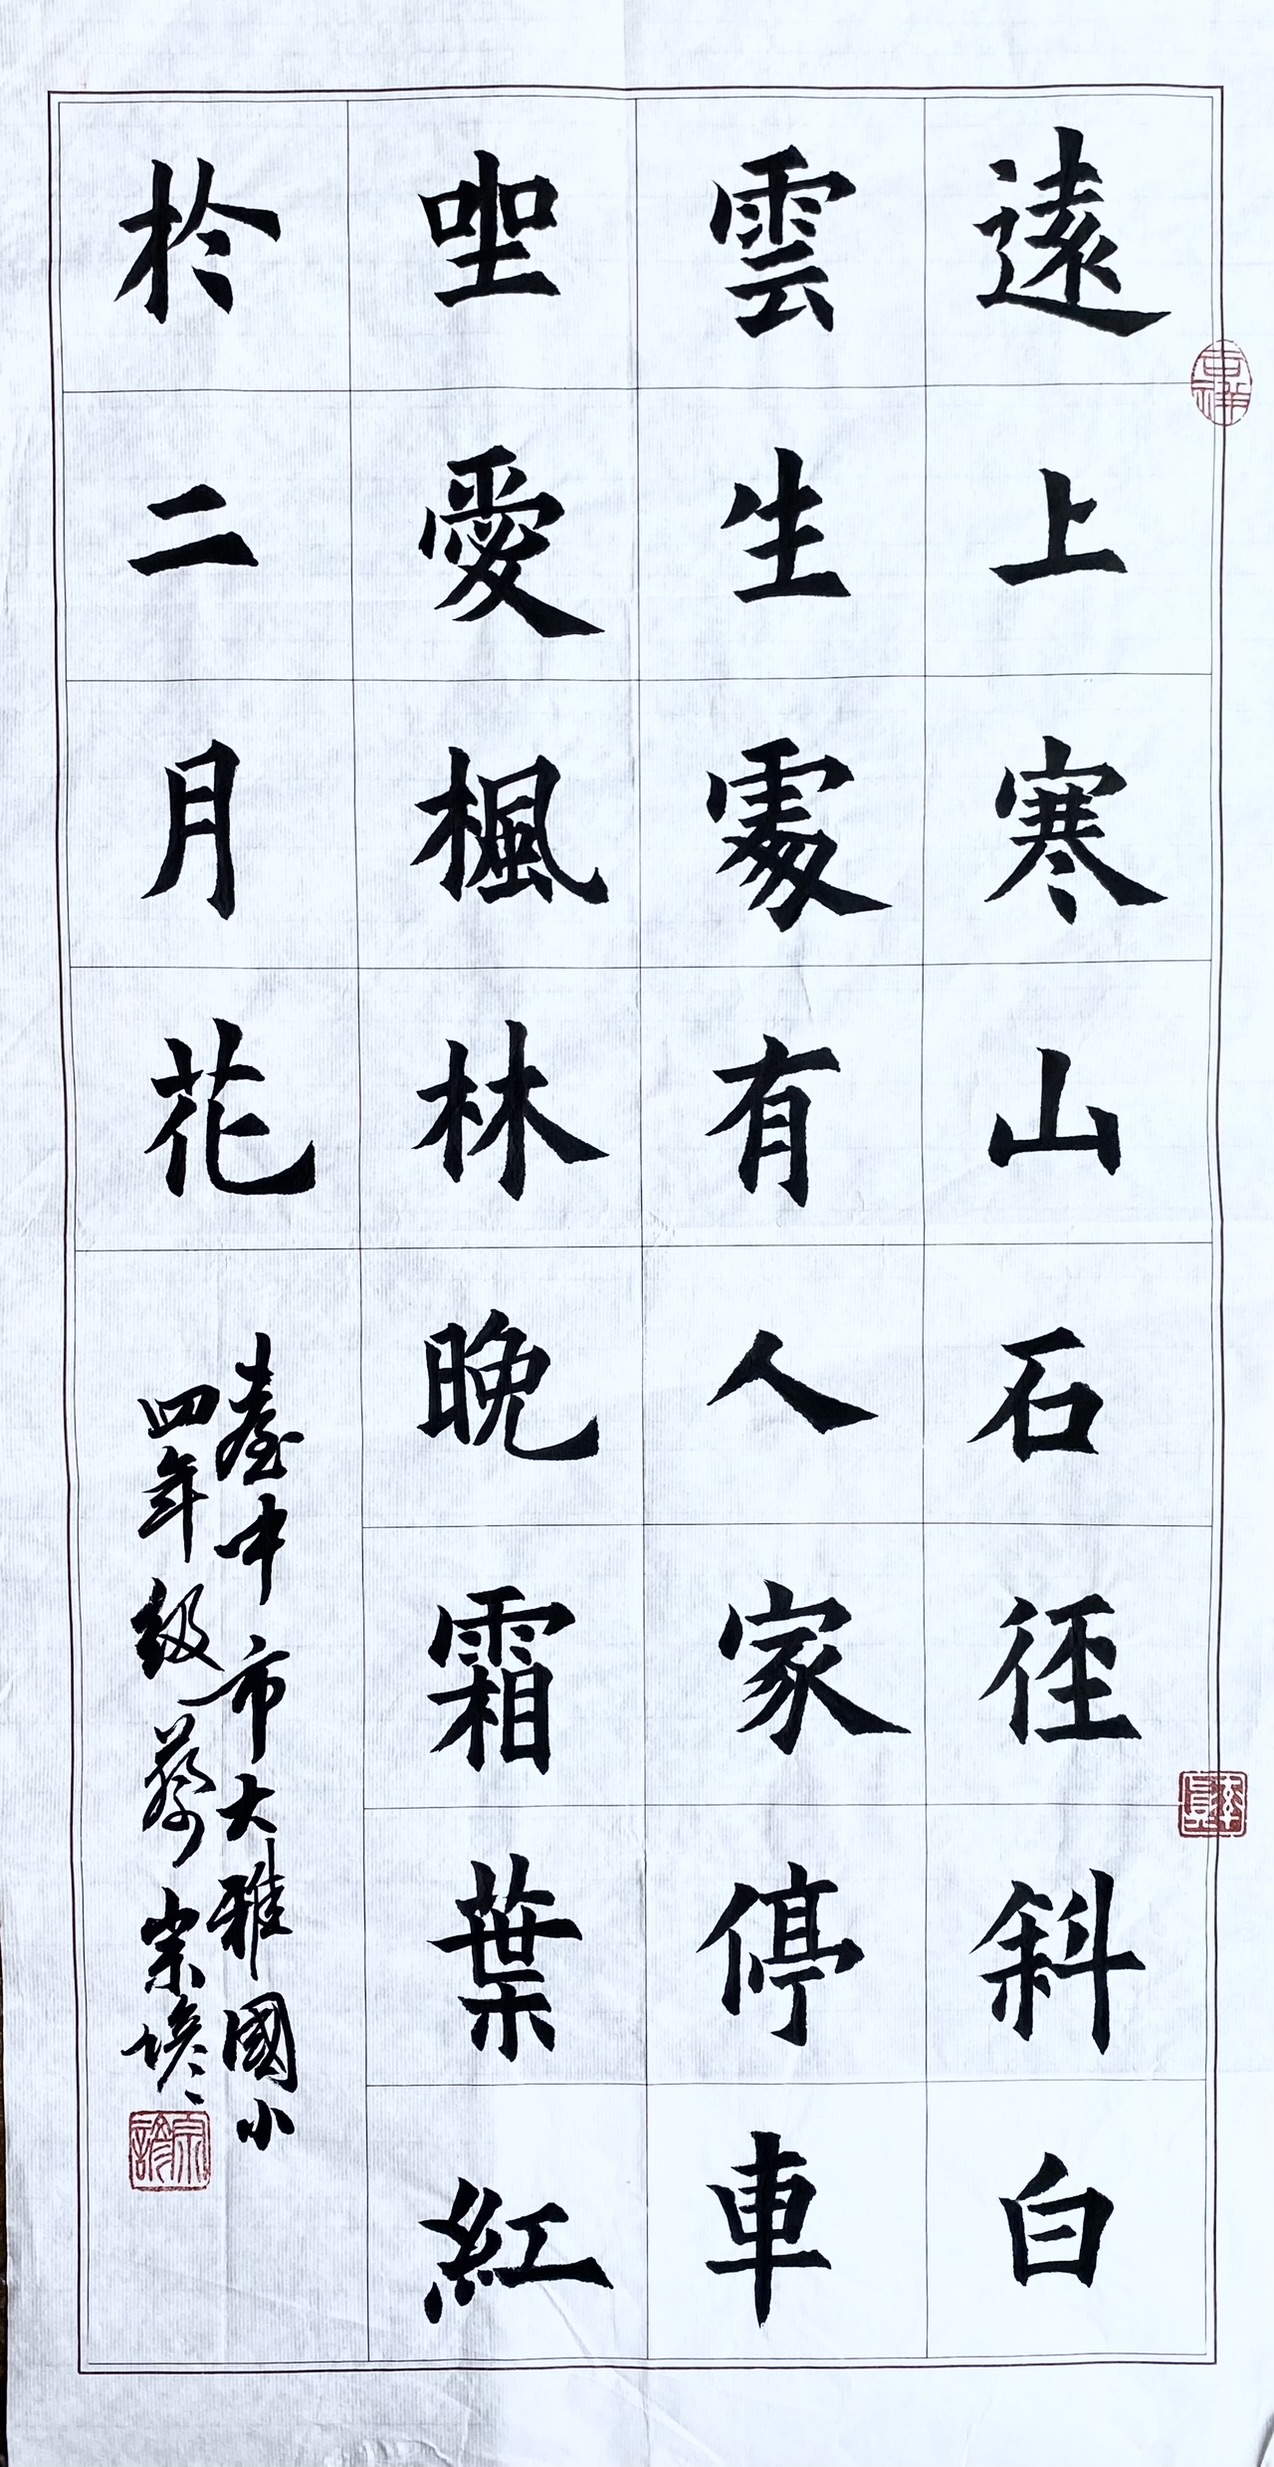 遠上寒山石徑斜白
雲生處有人家停車
坐愛楓林晚霜葉紅
於二月花
臺中市大雅國小
四年級蔡宗
吉祥